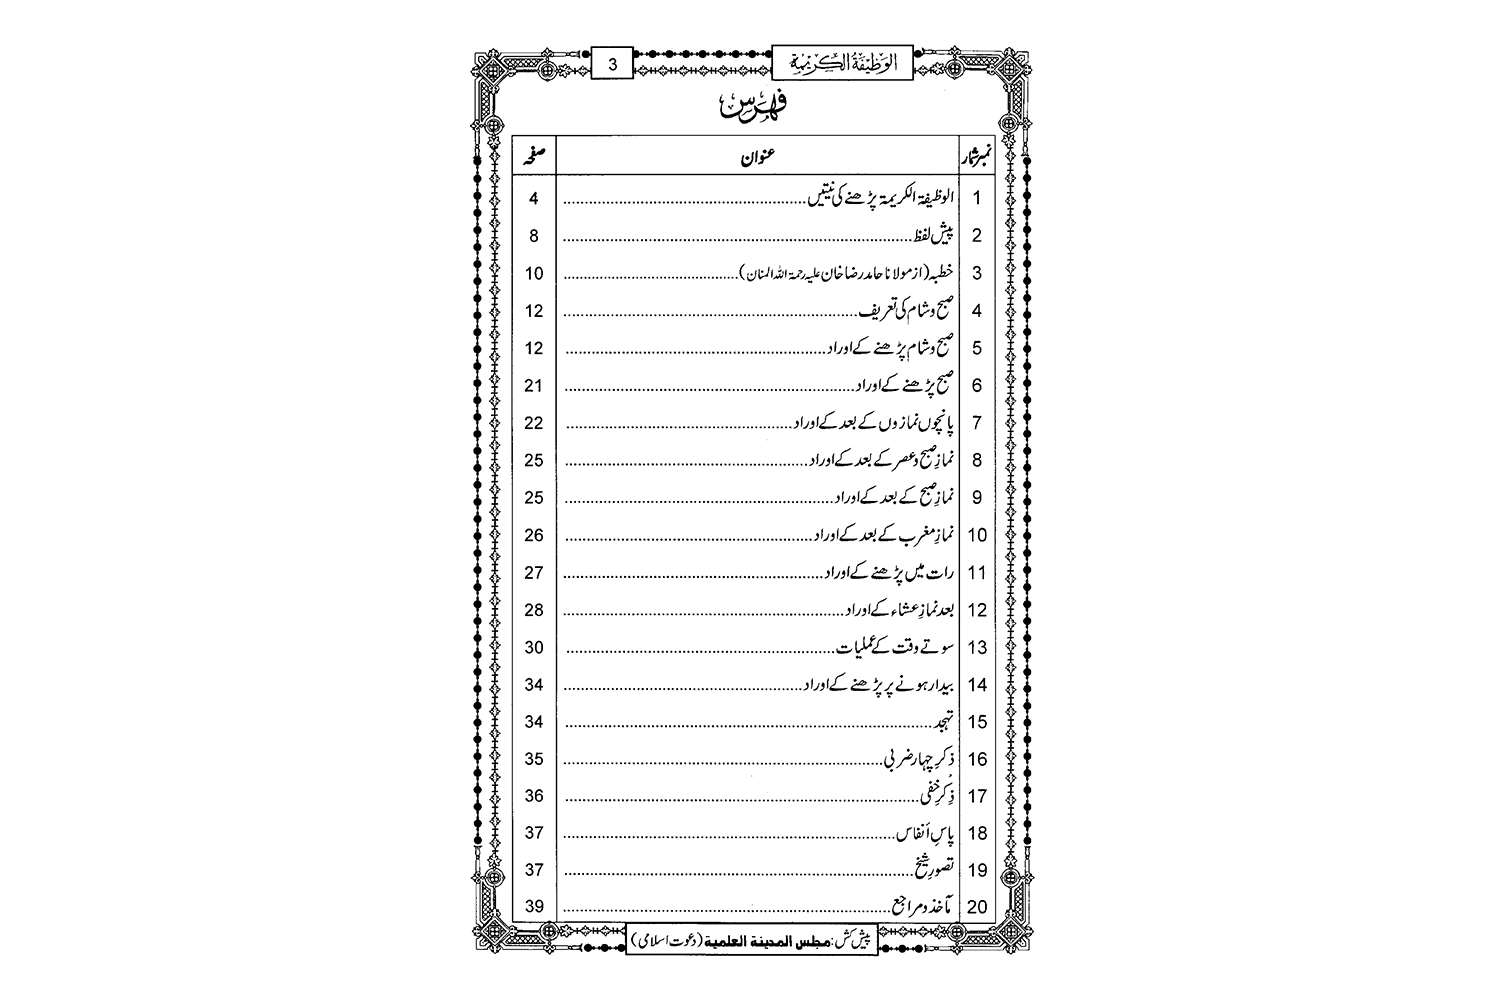 الوَظِيْفَةُ الكَرِيْمَة 3
فہرس
نمبر شمار عنوان صفحہ
1 الوظیفۃ الکریمۃ پڑھنے کی نیتیں 4
2 پیش لفظ 8
3 خطبہ (از مولانا حامد رضا خان علیہ رحمۃ اللہ المنان) 10
4 صبح و شام کی تعریف 12
5 صبح و شام پڑھنے کے اوراد 12
6 صبح پڑھنے کے اوراد 21
7 پانچوں نمازوں کے بعد کے اوراد 22
8 نمازِ صبح و عصر کے بعد کے اوراد 25
9 نمازِ صبح کے بعد کے اوراد 25
10 نمازِ مغرب کے بعد کے اوراد 26
11 رات میں پڑھنے کے اوراد 27
12 بعد نمازِ عشاء کے اوراد 28
13 سوتے وقت کے عملیات 30
14 بیدار ہونے پر پڑھنے کے اوراد 34
15 تہجد 34
16 ذکرِ چہار ضربی 35
17 ذِکرِ خفی 36
18 پاسِ أنفاس 37
19 تصورِ شیخ 37
20 مآخذ و مراجع 39
پیش کش: مجلس المدینۃ العلمیۃ (دعوت اسلامی)